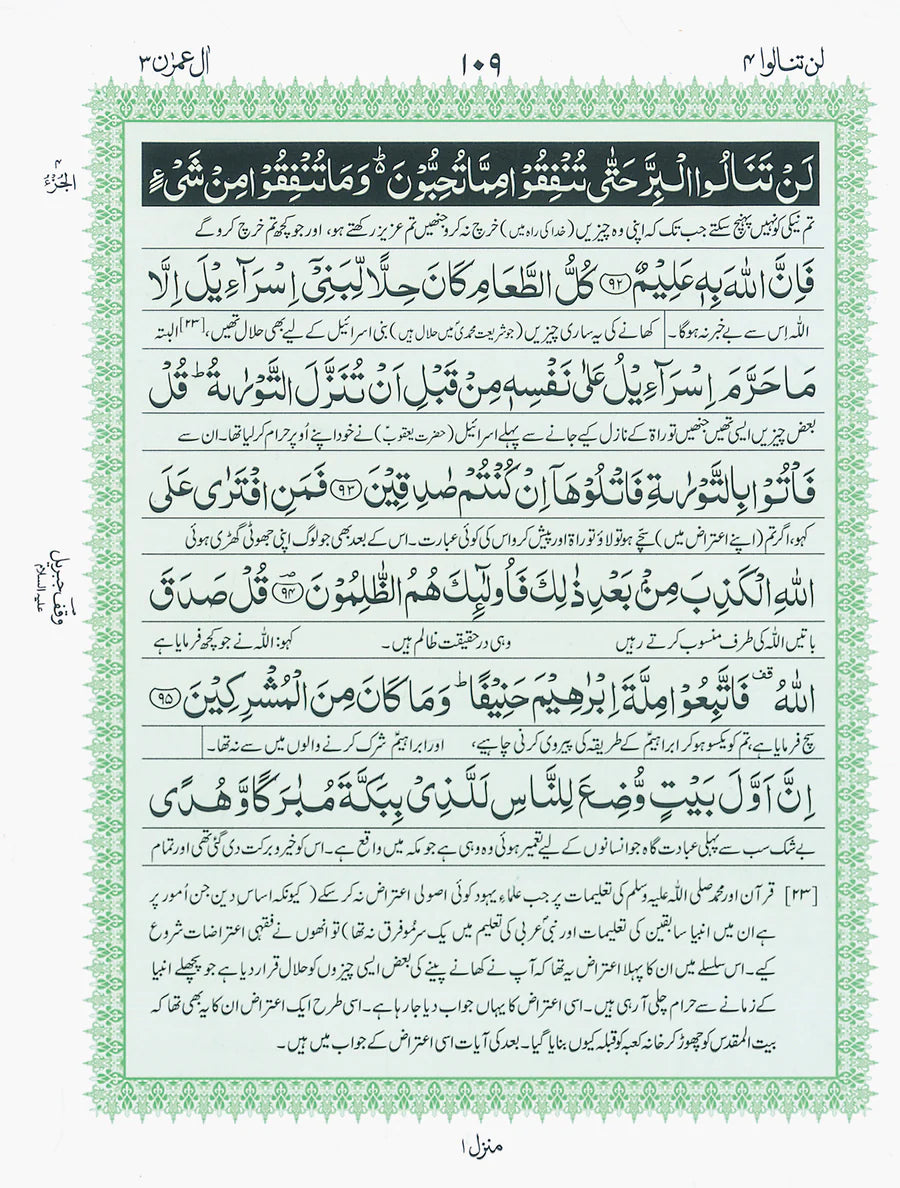 لن تنالوا ۴
۱۰۹
اٰل عمرٰن ۳
۴
الجزء
لَنْ تَنَالُوا الْبِرَّ حَتّٰى تُنْفِقُوْا مِمَّا تُحِبُّوْنَ ؕ۬ وَ مَا تُنْفِقُوْا مِنْ شَیْءٍ
تم نیکی کو نہیں پہنچ سکتے جب تک کہ اپنی وہ چیزیں (خدا کی راہ میں) خرچ نہ کرو جنھیں تم عزیز رکھتے ہو، اور جو کچھ تم خرچ کرو گے
فَاِنَّ اللّٰهَ بِهٖ عَلِیْمٌ ﴿۹۲﴾ كُلُّ الطَّعَامِ كَانَ حِلًّا لِّبَنِیْۤ اِسْرَآءِیْلَ اِلَّا
اللہ اس سے بے خبر نہ ہوگا۔ کھانے کی یہ ساری چیزیں (جو شریعت محمدیؐ میں حلال ہیں) بنی اسرائیل کے لیے بھی حلال تھیں،[۲۳] البتہ
مَا حَرَّمَ اِسْرَآءِیْلُ عَلٰى نَفْسِهٖ مِنْ قَبْلِ اَنْ تُنَزَّلَ التَّوْرٰىةُ ؕ قُلْ
بعض چیزیں ایسی تھیں جنھیں توراۃ کے نازل کیے جانے سے پہلے اسرائیل (حضرت یعقوبؑ) نے خود اپنے اُوپر حرام کر لیا تھا۔ ان سے
فَاْتُوْا بِالتَّوْرٰىةِ فَاتْلُوْهَاۤ اِنْ كُنْتُمْ صٰدِقِیْنَ ﴿۹۳﴾ فَمَنِ افْتَرٰى عَلَى
کہو، اگر تم (اپنے اعتراض میں) سچّے ہو تو لاؤ توراۃ اور پیش کرو اس کی کوئی عبارت۔ اس کے بعد بھی جو لوگ اپنی جھوٹی گھڑی ہوئی
وقف جبریل
علیہ السلام
اللّٰهِ الْكَذِبَ مِنْۢ بَعْدِ ذٰلِكَ فَاُولٰٓىِٕكَ هُمُ الظّٰلِمُوْنَ ﴿۹۴﴾ؔ قُلْ صَدَقَ
باتیں اللہ کی طرف منسوب کرتے رہیں وہی درحقیقت ظالم ہیں۔ کہو: اللہ نے جو کچھ فرمایا ہے
اللّٰهُ ۫ قف فَاتَّبِعُوْا مِلَّةَ اِبْرٰهِیْمَ حَنِیْفًا ؕ وَ مَا كَانَ مِنَ الْمُشْرِكِیْنَ ﴿۹۵﴾
سچ فرمایا ہے، تم کو یکسو ہو کر ابراہیمؑ کے طریقہ کی پیروی کرنی چاہیے، اور ابراہیمؑ شرک کرنے والوں میں سے نہ تھا۔
اِنَّ اَوَّلَ بَیْتٍ وُّضِعَ لِلنَّاسِ لَلَّذِیْ بِبَكَّةَ مُبٰرَكًا وَّ هُدًى
بے شک سب سے پہلی عبادت گاہ جو انسانوں کے لیے تعمیر ہوئی وہ وہی ہے جو مکہ میں واقع ہے۔ اس کو خیر و برکت دی گئی تھی اور تمام
[۲۳] قرآن اور محمد صلی اللہ علیہ وسلم کی تعلیمات پر جب علماء یہود کوئی اصولی اعتراض نہ کر سکے ( کیونکہ اساس دین جن اُمور پر
ہے ان میں انبیا سابقین کی تعلیمات اور نبی عربی کی تعلیم میں یک سرِ مُو فرق نہ تھا) تو انھوں نے فقہی اعتراضات شروع
کیے۔ اس سلسلے میں ان کا پہلا اعتراض یہ تھا کہ آپ نے کھانے پینے کی بعض ایسی چیزوں کو حلال قرار دیا ہے جو پچھلے انبیا
کے زمانے سے حرام چلی آ رہی ہیں۔ اسی اعتراض کا یہاں جواب دیا جا رہا ہے۔ اسی طرح ایک اعتراض ان کا یہ بھی تھا کہ
بیت المقدس کو چھوڑ کر خانہ کعبہ کو قبلہ کیوں بنایا گیا۔ بعد کی آیات اسی اعتراض کے جواب میں ہیں۔
منزل ۱